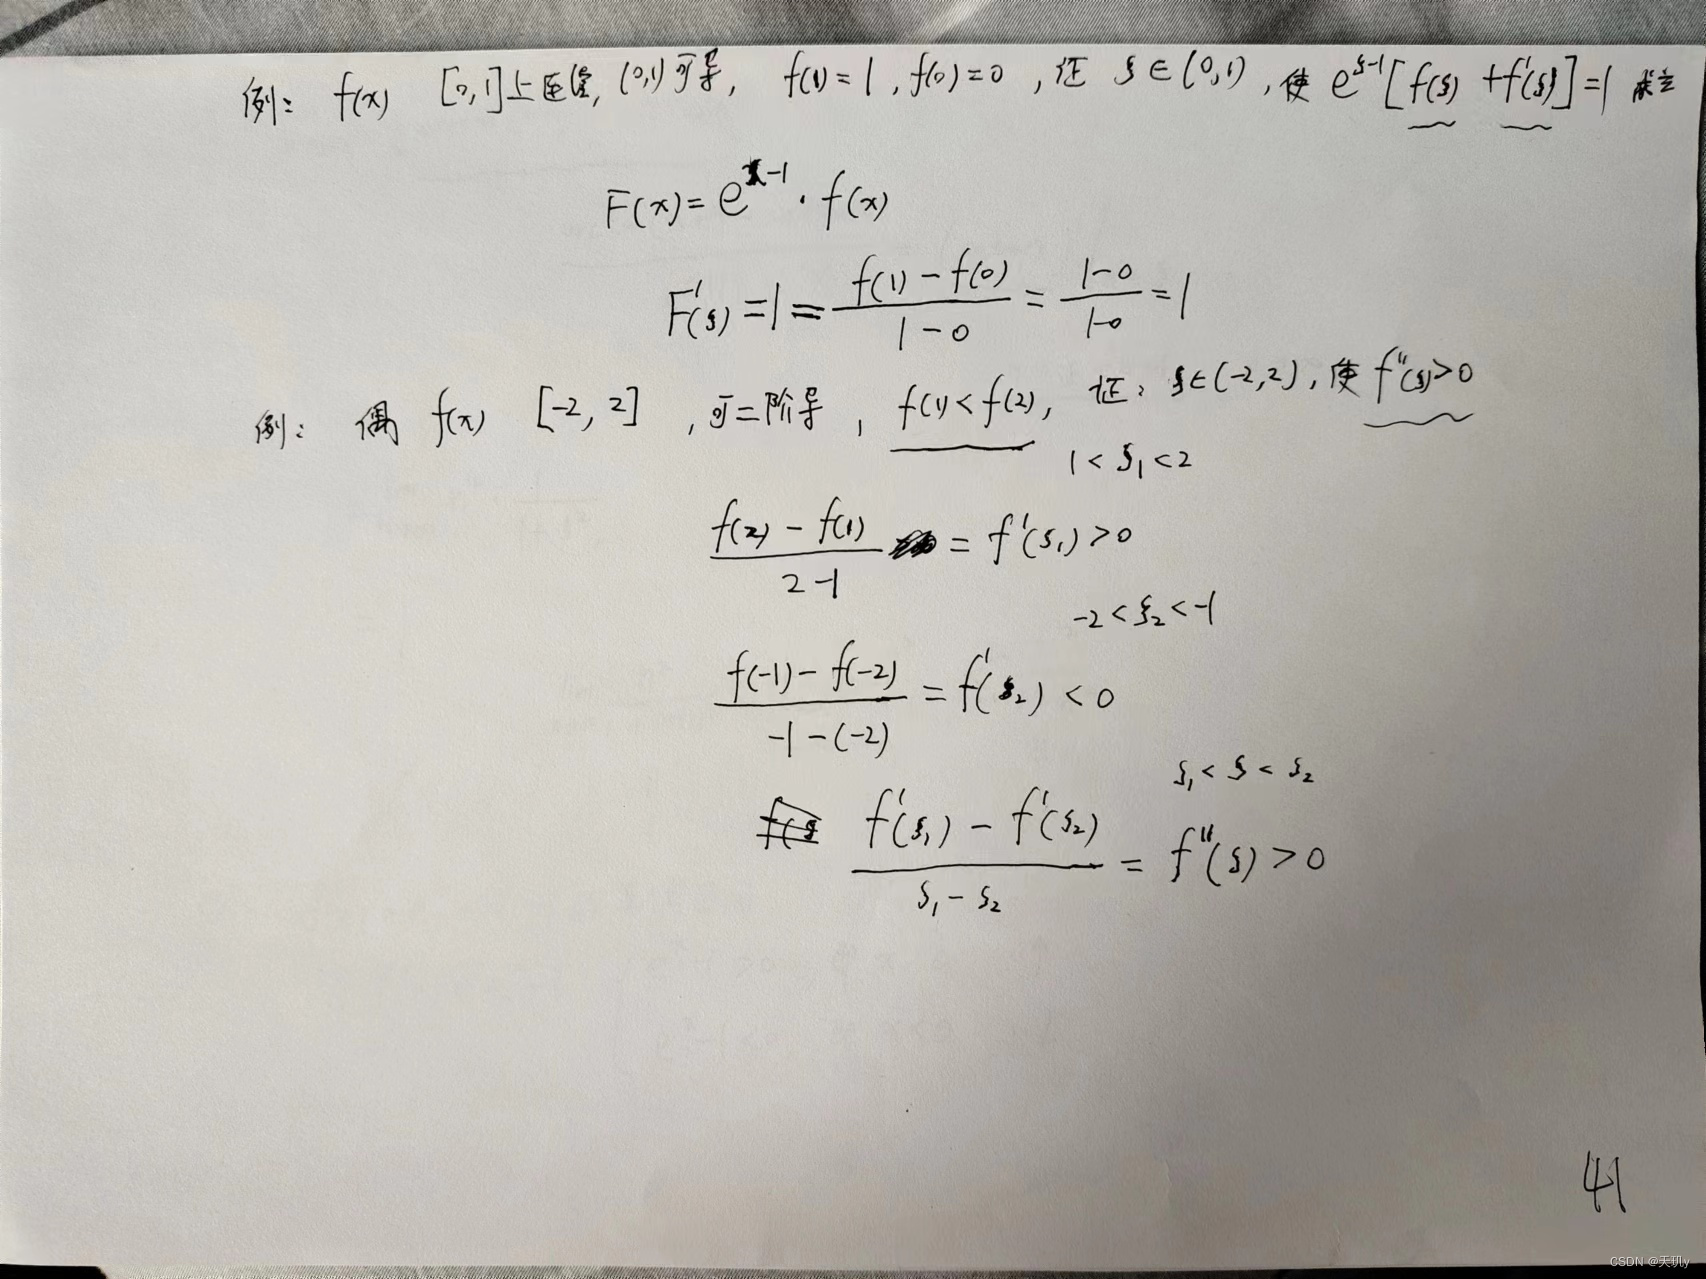 例: f(x) [0,1]上连续, (0,1)可导, f(1)=1, f(0)=0, 证 ξ∈(0,1), 使 e^{ξ-1}[f(ξ)+f'(ξ)]=1 成立
F(x)=e^{x-1}·f(x)
F'(ξ)=1=\frac{f(1)-f(0)}{1-0}=\frac{1-0}{1-0}=1
例: 偶 f(x) [-2, 2], 可二阶导, f(1)<f(2), 证: ξ∈(-2,2), 使 f''(ξ)>0
1<ξ₁<2
\frac{f(2)-f(1)}{2-1}=f'(ξ₁)>0
-2<ξ₂<-1
\frac{f(-1)-f(-2)}{-1-(-2)}=f'(ξ₂)<0
ξ₁<ξ<ξ₂
\frac{f'(ξ₁)-f'(ξ₂)}{ξ₁-ξ₂}=f''(ξ)>0
41
CSDN @天玑y